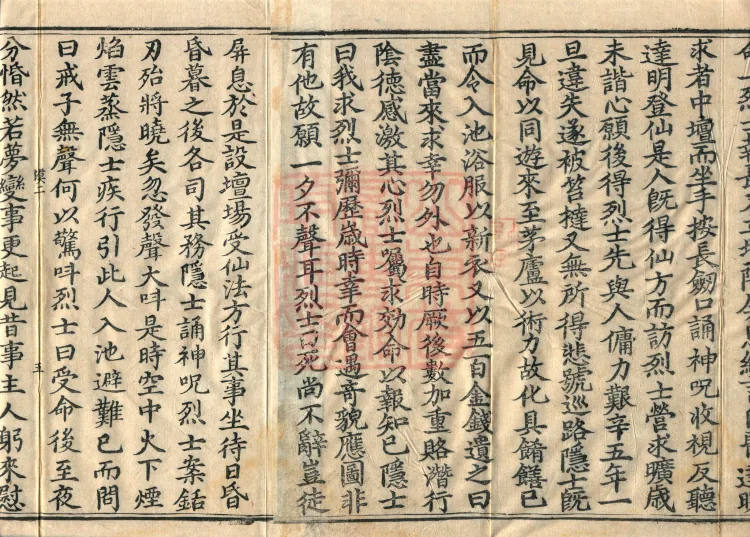 求者中壇而坐手按長劒口誦神呪收視反聽
達明登仙是人旣得仙方而訪烈士營求曠歲
未諧心願後得烈士先與人傭力艱辛五年一
旦違失遂被笞撻又無所得悲號巡路隱士旣
見命以同遊來至茅廬以術力故化具餚饍已
而令入池浴服以新衣又以五百金錢遺之曰
盡當來求幸勿外也自時厥後數加重賂潛行
陰德感激其心烈士囑求効命以報知己隱士
曰我求烈士彌歷歲時幸而會遇奇貌應圖非
有他故願一夕不聲耳烈士曰死尚不辭豈徒
屏息於是設壇場受仙法方行其事坐待日昏
昏暮之後各司其務隱士誦神呪烈士案銛
刃殆將曉矣忽發聲大呌是時空中火下煙
焰雲蒸隱士疾行引此人入池避難已而問
曰戒子無聲何以驚呌烈士曰受命後至夜
二 五
分惛然若夢變事更起見昔事主人躬來慰